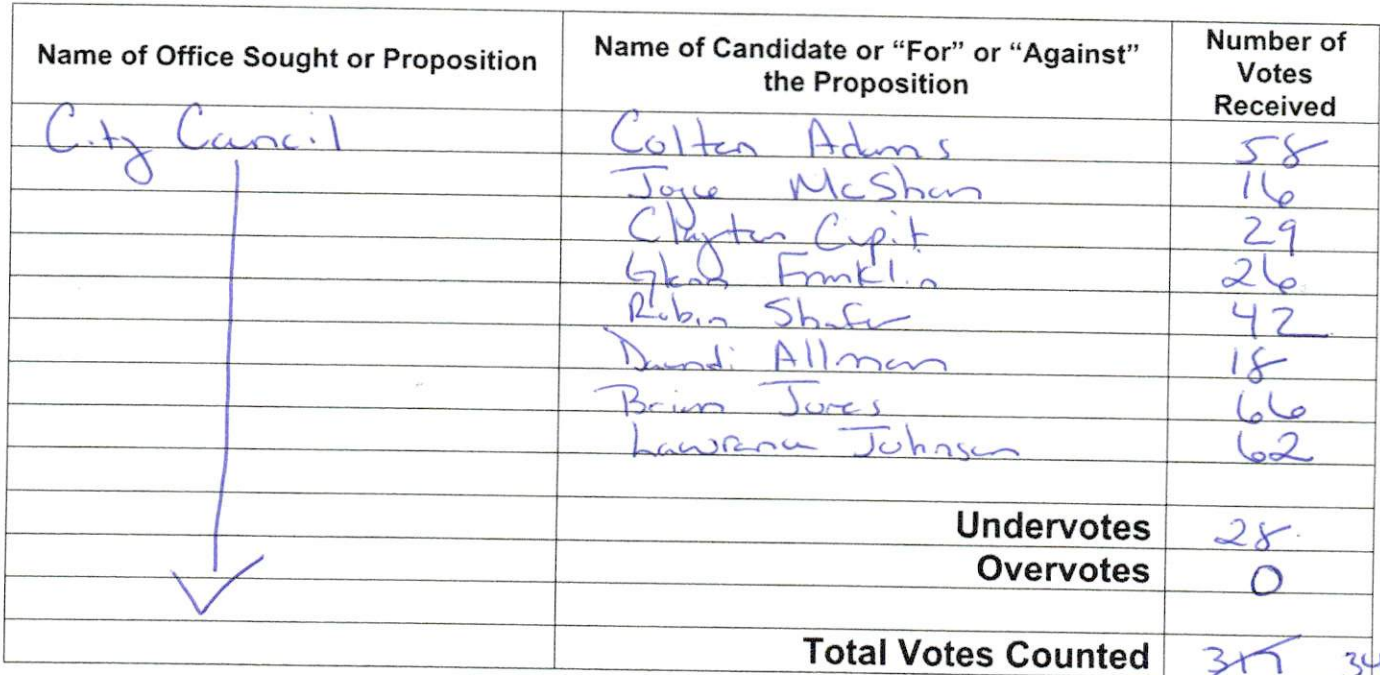 Name of Office Sought or Proposition
Name of Candidate or "For" or "Against" the Proposition
Number of Votes Received
City Council
Colten Adams 58
Joyce McShan 16
Clayton Cupit 29
Glenn Franklin 26
Robin Shafer 42
Allman 18
Brian Jones 66
Lawrence Johnson 62
Undervotes 28
Overvotes 0
Total Votes Counted 317 34